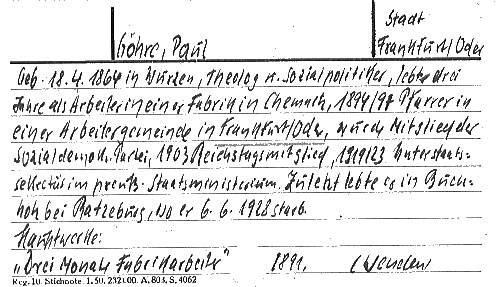 Stadt
Göhre, Paul
Frankfurt/Oder
Geb. 18.4.1864 in Wurzen, Theolog u. Sozialpolitiker, lebte drei
Jahre als Arbeiter in einer Fabrik in Chemnitz, 1894/97 Pfarrer in
einer Arbeitergemeinde in Frankfurt/Oder, wurde Mitglied der
Sozialdemokr. Partei, 1903 Reichstagsmitglied, 1919/23 Unterstaats-
sekretär im preuß. Staatsministerium. Zuletzt lebte er in Buch-
holz bei Ratzeburg, wo er 6.6.1928 starb.
Hauptwerke:
„Drei Monate Fabrikarbeiter" 1891. (Wenden
Reg. 10. Stichnote. 1. 50. 2321.00. A. 803. S. 4062